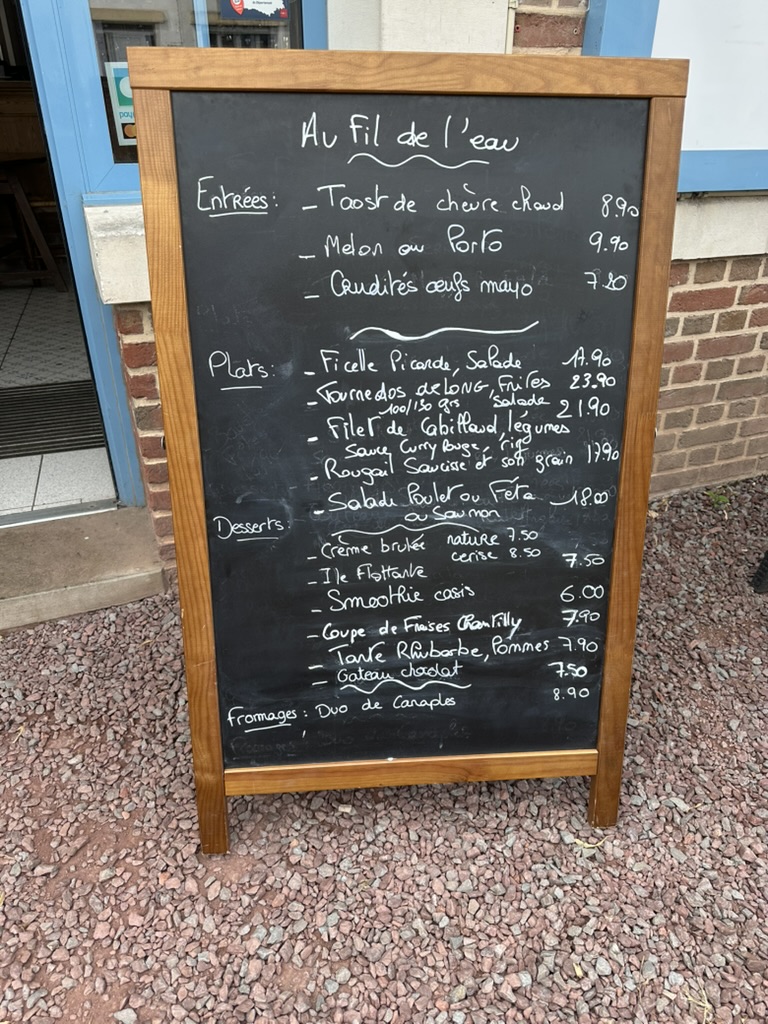 Au Fil de l'eau
Entrées: - Taost de chèvre chaud 8.90
- Melon au Porto 9.90
- Crudités œufs mayo
~
Plats: - Ficelle Picarde, Salade 17.90
- Tournedos DELONG, Frites 23.90
100/150 grs salade
- Filet de Cabillaud, légumes 21.90
Sauce Curry Rouge, riz
- Rougail Saucisse et son grain 17.90
- Salade Poulet ou Féta 18.00
ou Saumon
Desserts:
- Crème brulée nature 7.50
cerise 8.50
- Ile Flottante 7.50
- Smoothie casis 6.00
- Coupe de Fraises Chantilly 7.90
- Tarte Rhubarbe, Pommes 7.90
- Gateau chocolat 7.50
Fromages: Duo de Canaples 8.90